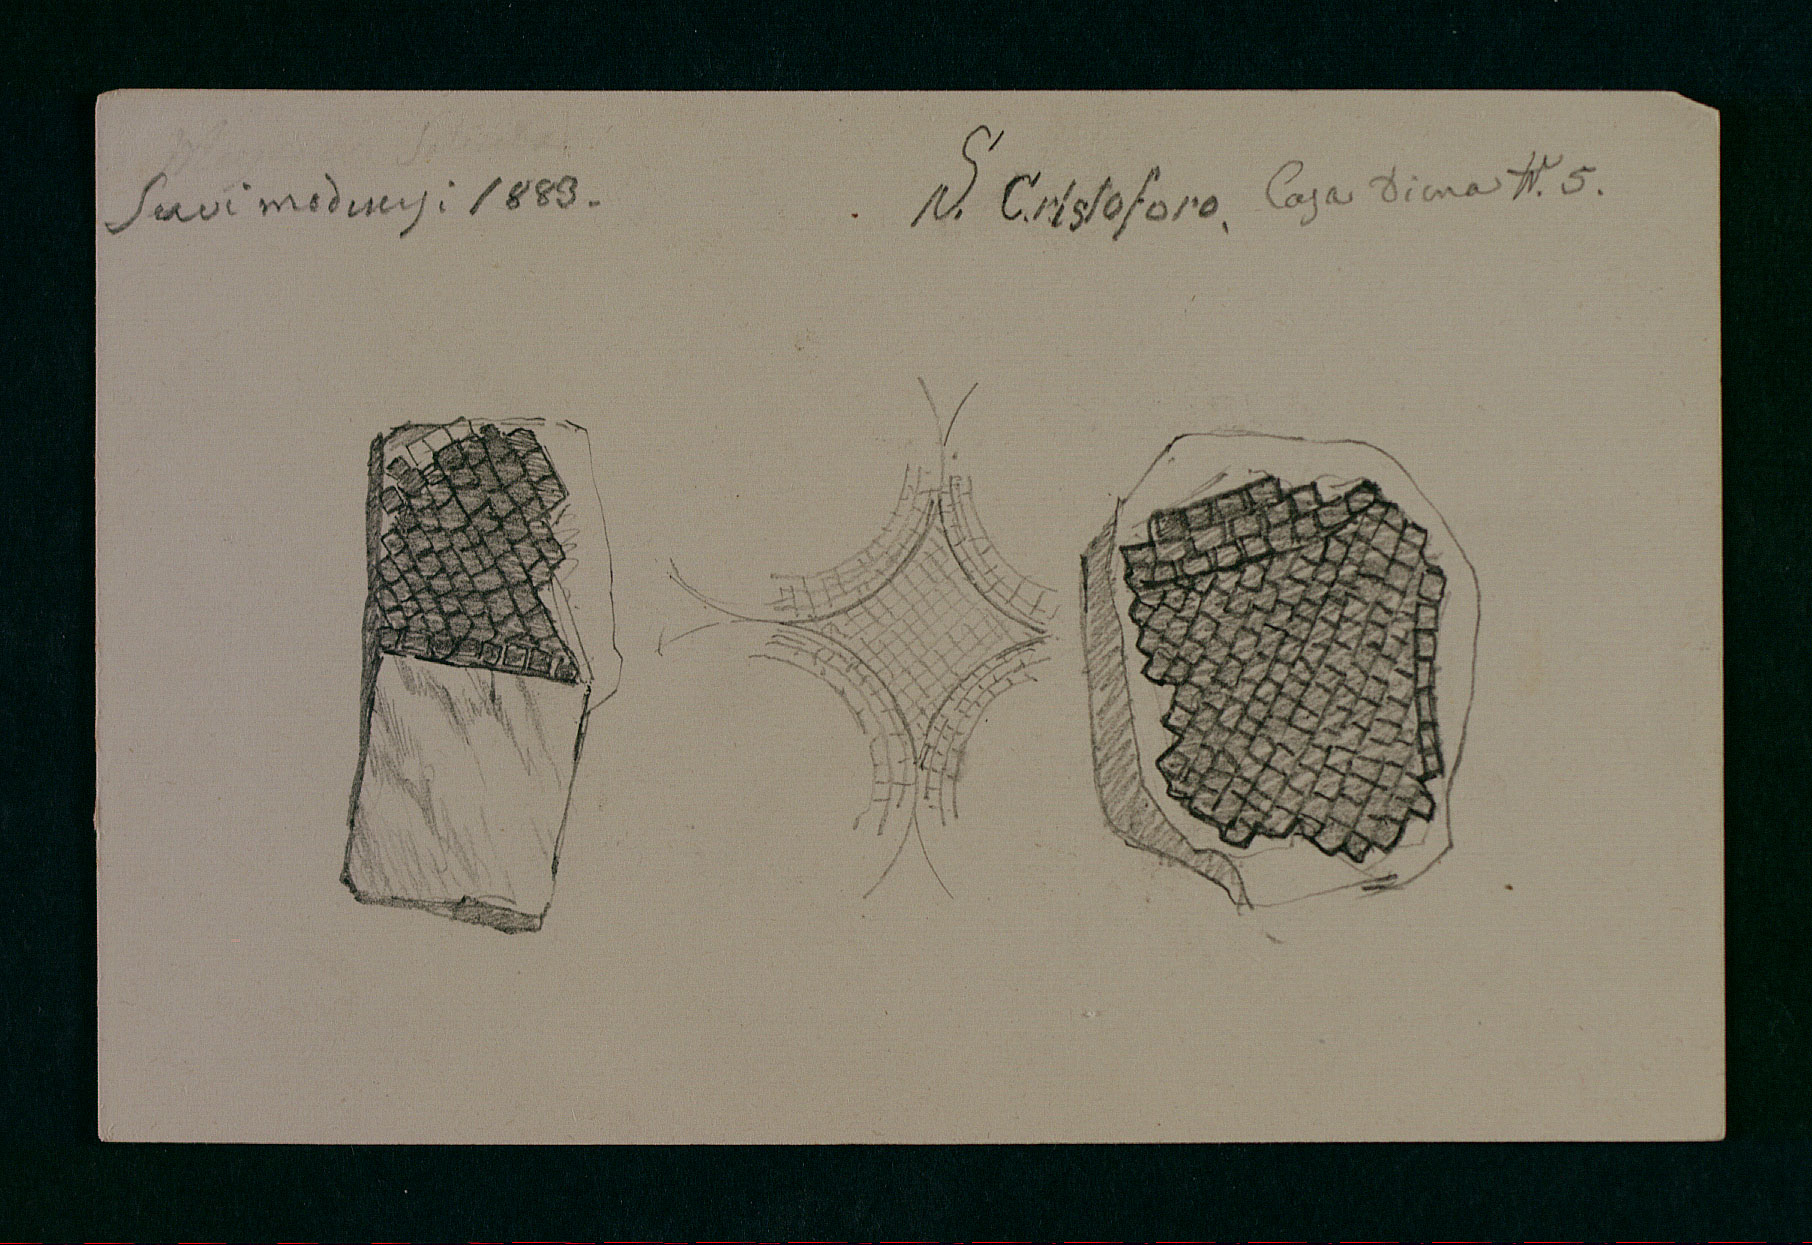 Scavi modenesi 1883.
S
N. Cristoforo, Casa Diena N. 5.